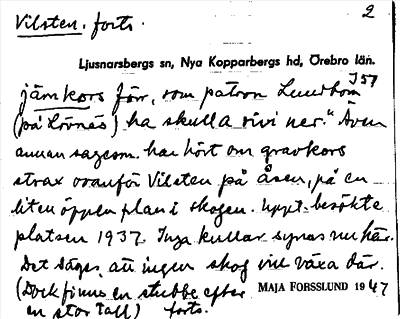 Vilsten. forts.
2
Ljusnarsbergs sn, Nya Kopparbergs hd, Örebro län.
I 57
järnkors förr, som patron Lundbom
(på Hörnäs) ha skulle rivi ner." Även
annan sagesm. har hört om gravkors
strax ovanför Vilsten på åsen, på en
liten öppen plan i skogen. Uppt. besökte
platsen 1937. Inga kullar synas nu här.
Det säges, att ingen skog vill växa där.
(Dock finns en stubbe efter
MAJA FORSSLUND 1947
en stor tall) forts.